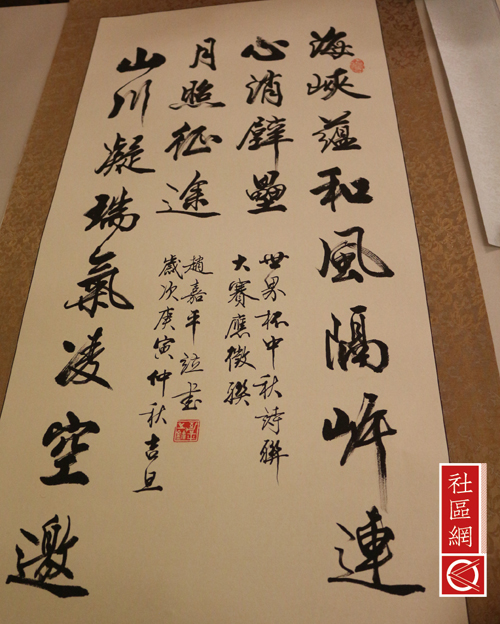 海峽蘊和風隔岸連
心消壁壘
世界杯中秋詩聯
大賽應徵聯
山川凝瑞氣凌空邀
月照征途
歲次庚寅仲秋吉旦
趙嘉平竝書
社區網